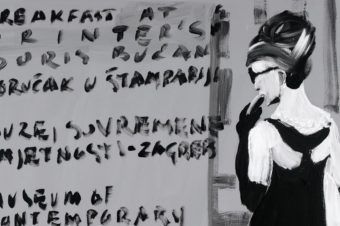 REAKFAST AT A
PRINTERIS
BORIS BUĆAN
DORUČAK U ŠTAMPARIJI
UZEJ SUVREMENE
MJETNOSTI-ZAGREB
MUSEUM OF
CONTEMPORARY